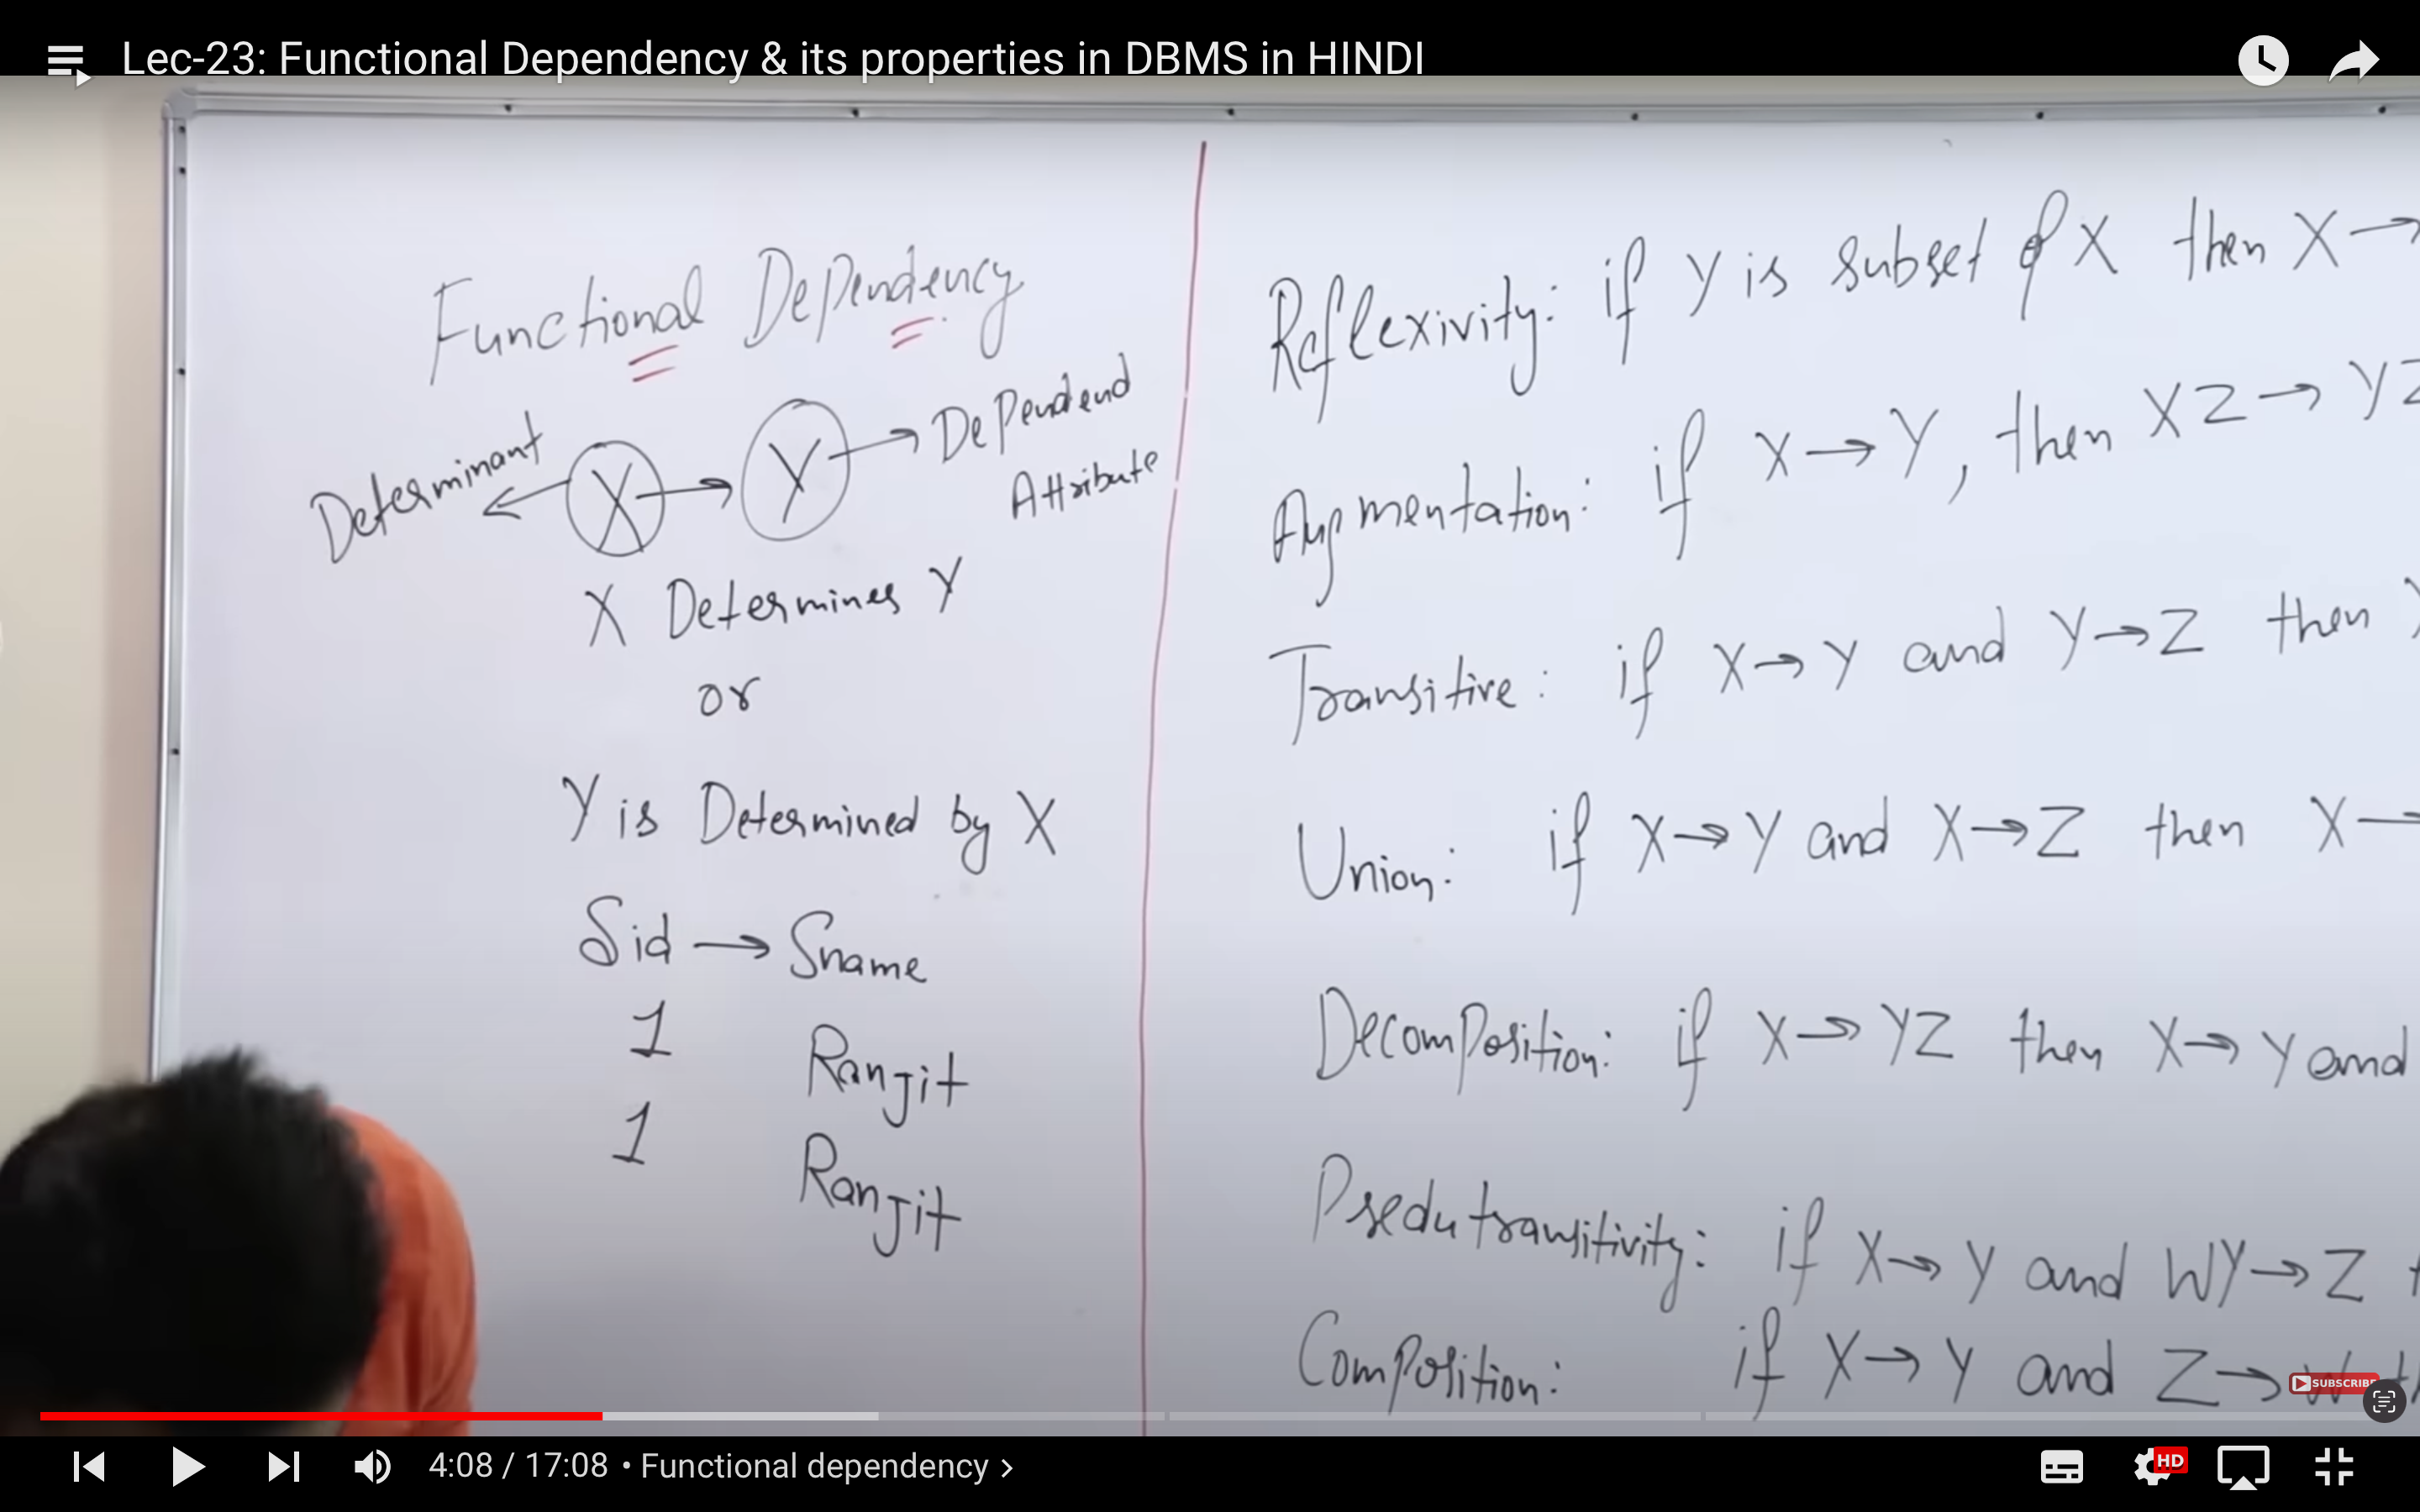 Lec-23: Functional Dependency & its properties in DBMS in HINDI
Functional Dependency
Determinant X → Y → Dependend
Attribute
X Determines Y
or
Y is Determined by X
Sid → Sname
1 Ranjit
1 Ranjit
Reflexivity: if Y is subset of X then X →
Augmentation: if X → Y, then XZ → YZ
Transitive: if X → Y and Y → Z then
Union: if X → Y and X → Z then X →
DecomPosition: if X → YZ then X → Y and
Psedutransitivity: if X → Y and WY → Z
ComPosition: if X → Y and Z → W
SUBSCRIBE
4:08 / 17:08 • Functional dependency
HD